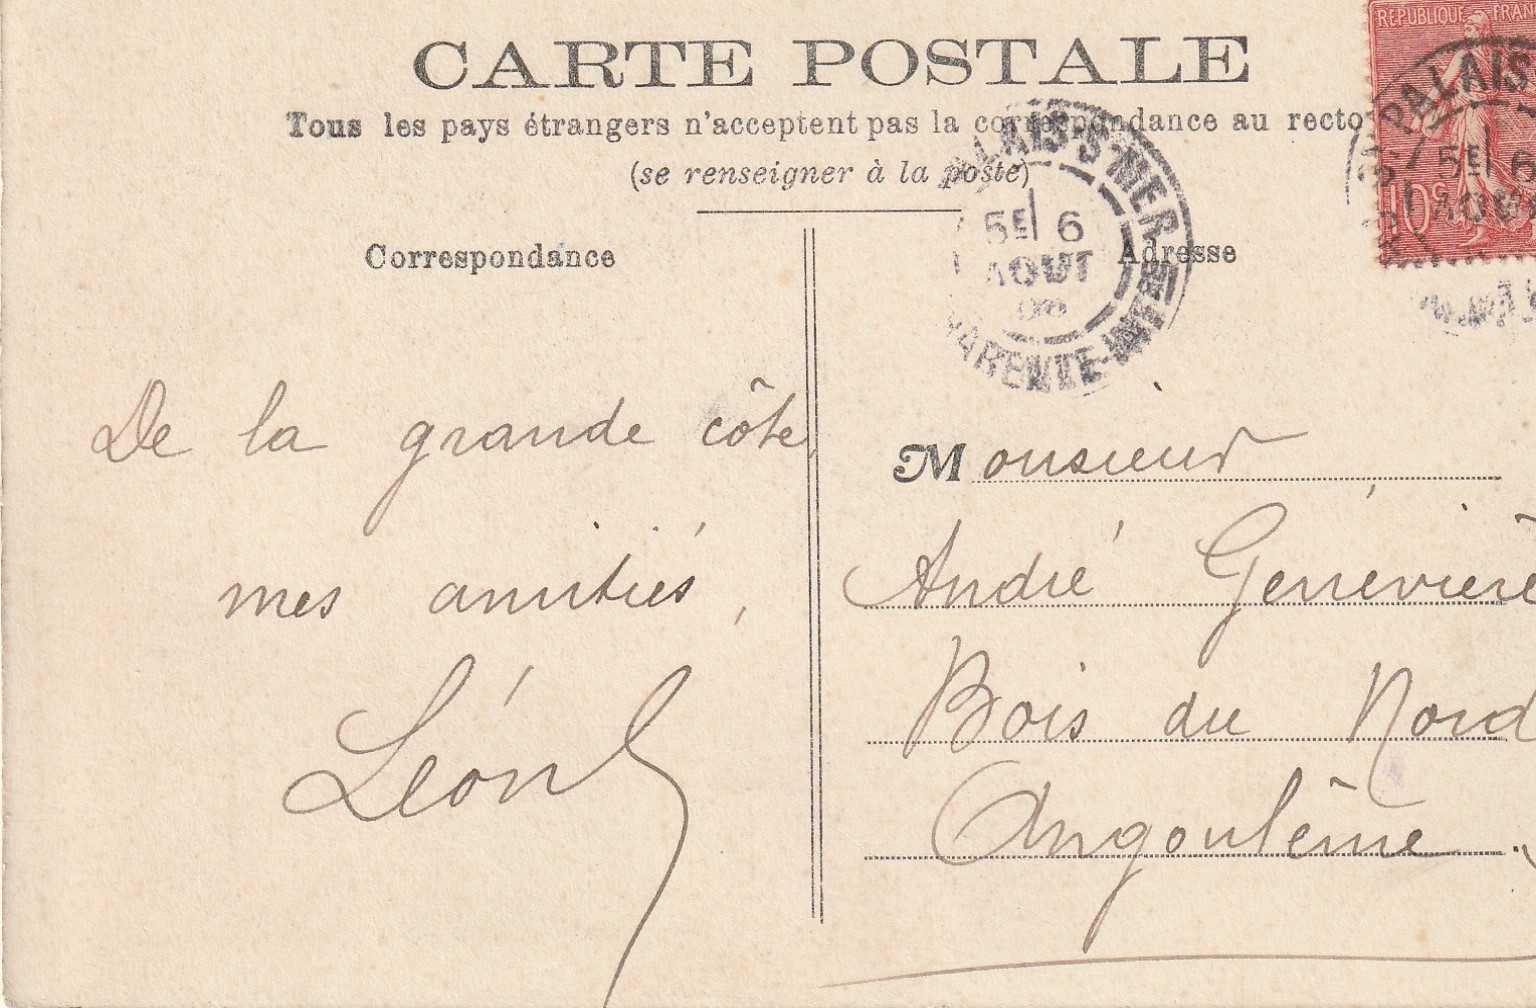 CARTE POSTALE
Tous les pays étrangers n'acceptent pas la correspondance au recto
(se renseigner à la poste)
Correspondance
Adresse
REPUBLIQUE FRAN
10c
PALAIS
5E 6
AOUT
ALAIS-S-MER
5E 6
AOUT
ARENTE-INF
De la grande côte,
mes amitiés,
Léon
Monsieur
André Genevièr
Bois du Nord
Angoulême.